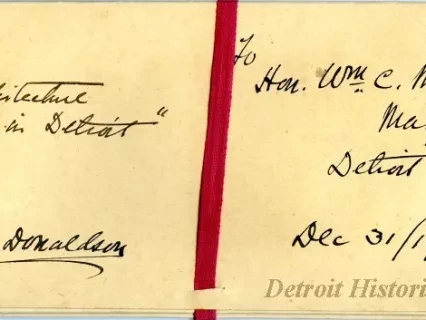 hitecture
in Detroit"
Donaldson
To
Hon. Wm. C. M
May
Detroit
Dec 31/1
Detroit Histori